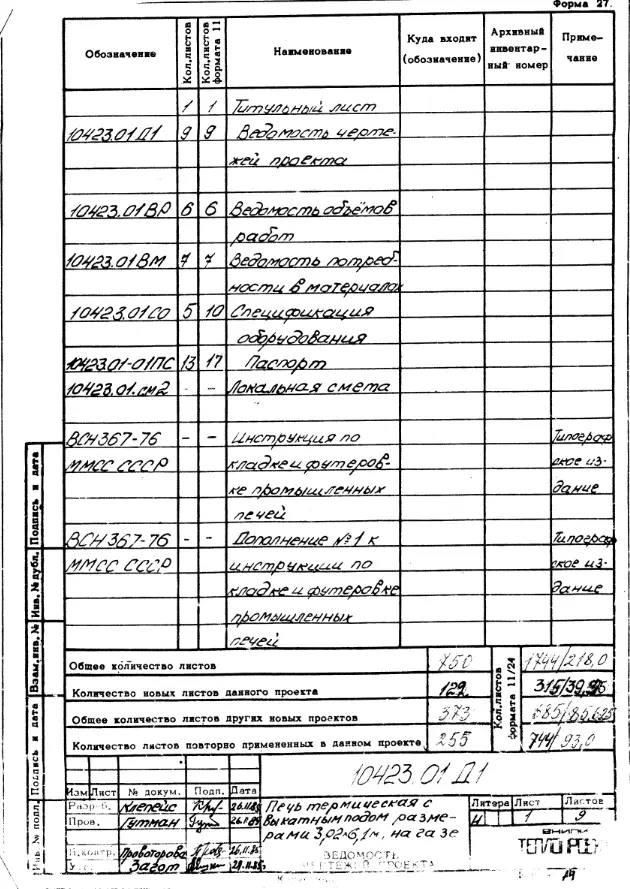 Форма 27.
Обозначение Кол.листов Кол.листов формата 11 Наименование Куда входит (обозначение) Архивный инвентарный номер Примечание
1 1 Титульный лист
10423.01Д1 9 9 Ведомость черте-
жей проекта
10423.01ВР 6 6 Ведомость объёмов
работ
10423.01ВМ 7 7 Ведомость потреб-
ности в материалах
10423.01СО 5 10 Спецификация
оборудования
10423.01-01ПС 13 17 Паспорт
10423.01.см2 - - Локальная смета
ВСН 367-76 - - Инструкция по Типограф
ММСС СССР кладке и футеров- ское из-
ке промышленных дание
печей
ВСН 367-76 - - Дополнение №1 к Типограф
ММСС СССР инструкции по ское из-
кладке и футеровке дание
промышленных
печей
Общее количество листов 750 Кол.листов формата 11/24 1744/218,0
Количество новых листов данного проекта 122
Общее количество листов других новых проектов 373 685/85,625
Количество листов повторно примененных в данном проекте 255 744/93,0
Инв. № подл. Подпись и дата Взам.инв. № Инв. № дубл. Подпись и дата
10423.01Д1
Изм Лист № докум. Подп. Дата
Разраб. Клепейс Печь термическая с Литера Лист Листов
Пров. Гутман выкатным подом разме- И 1 9
рами 3,02×6,1м, на газе
Н.контр. Провоторова ВЕДОМОСТЬ
ЧЕРТЕЖЕЙ ПРОЕКТА
ВНИПИ
ТЕПЛОПРОЕКТ